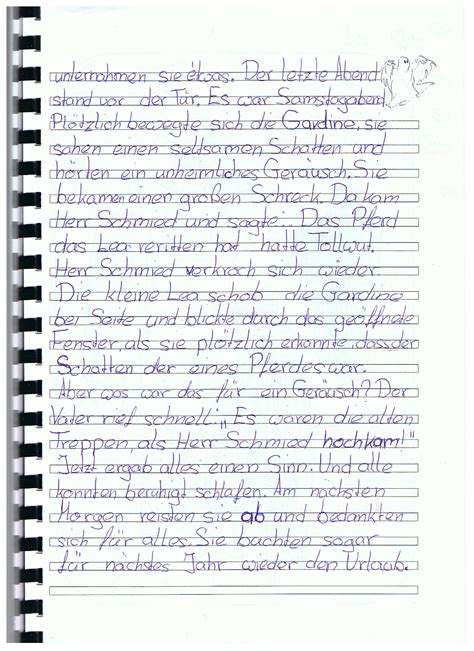 unternahmen sie etwas. Der letzte Abend
stand vor der Tür. Es war Samstagabend.
Plötzlich bewegte sich die Gardine, sie
sahen einen seltsamen Schatten und
hörten ein unheimliches Geräusch. Sie
bekamen einen großen Schreck. Da kam
Herr Schmied und sagte: Das Pferd
das Lea veritten hat hatte Tollwut.
Herr Schmied verkroch sich wieder.
Die kleine Lea schob die Gardine
bei Seite und blickte durch das geöffnete
Fenster, als sie plötzlich erkannte, dass der
Schatten der eines Pferdes war.
Aber was war das für ein Geräusch? Der
Vater rief schnell: „Es waren die alten
Treppen, als Herr Schmied hochkam!"
Jetzt ergab alles einen Sinn. Und alle
konnten beruhigt schlafen. Am nächsten
Morgen reisten sie ab und bedankten
sich für alles. Sie buchten sogar
für nächstes Jahr wieder den Urlaub.